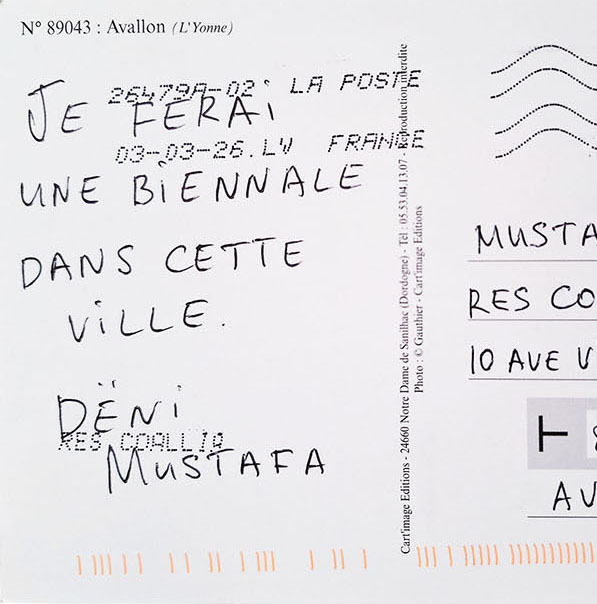 N° 89043 : Avallon (L'Yonne)
26479A-02 LA POSTE
03-03-26.LV FRANCE
JE FERAi
UNE BiENNALE
DANS CETTE
ViLLE.
DËNi
RES COALLIA
MUSTAFA
Cart'image Editions - 24660 Notre Dame de Sanilhac (Dordogne) - Tél : 05.53.04.13.07 - Reproduction interdite
Photo : © Gauthier - Cart'image Editions
MUSTA
RES CO
10 AVE V
AV